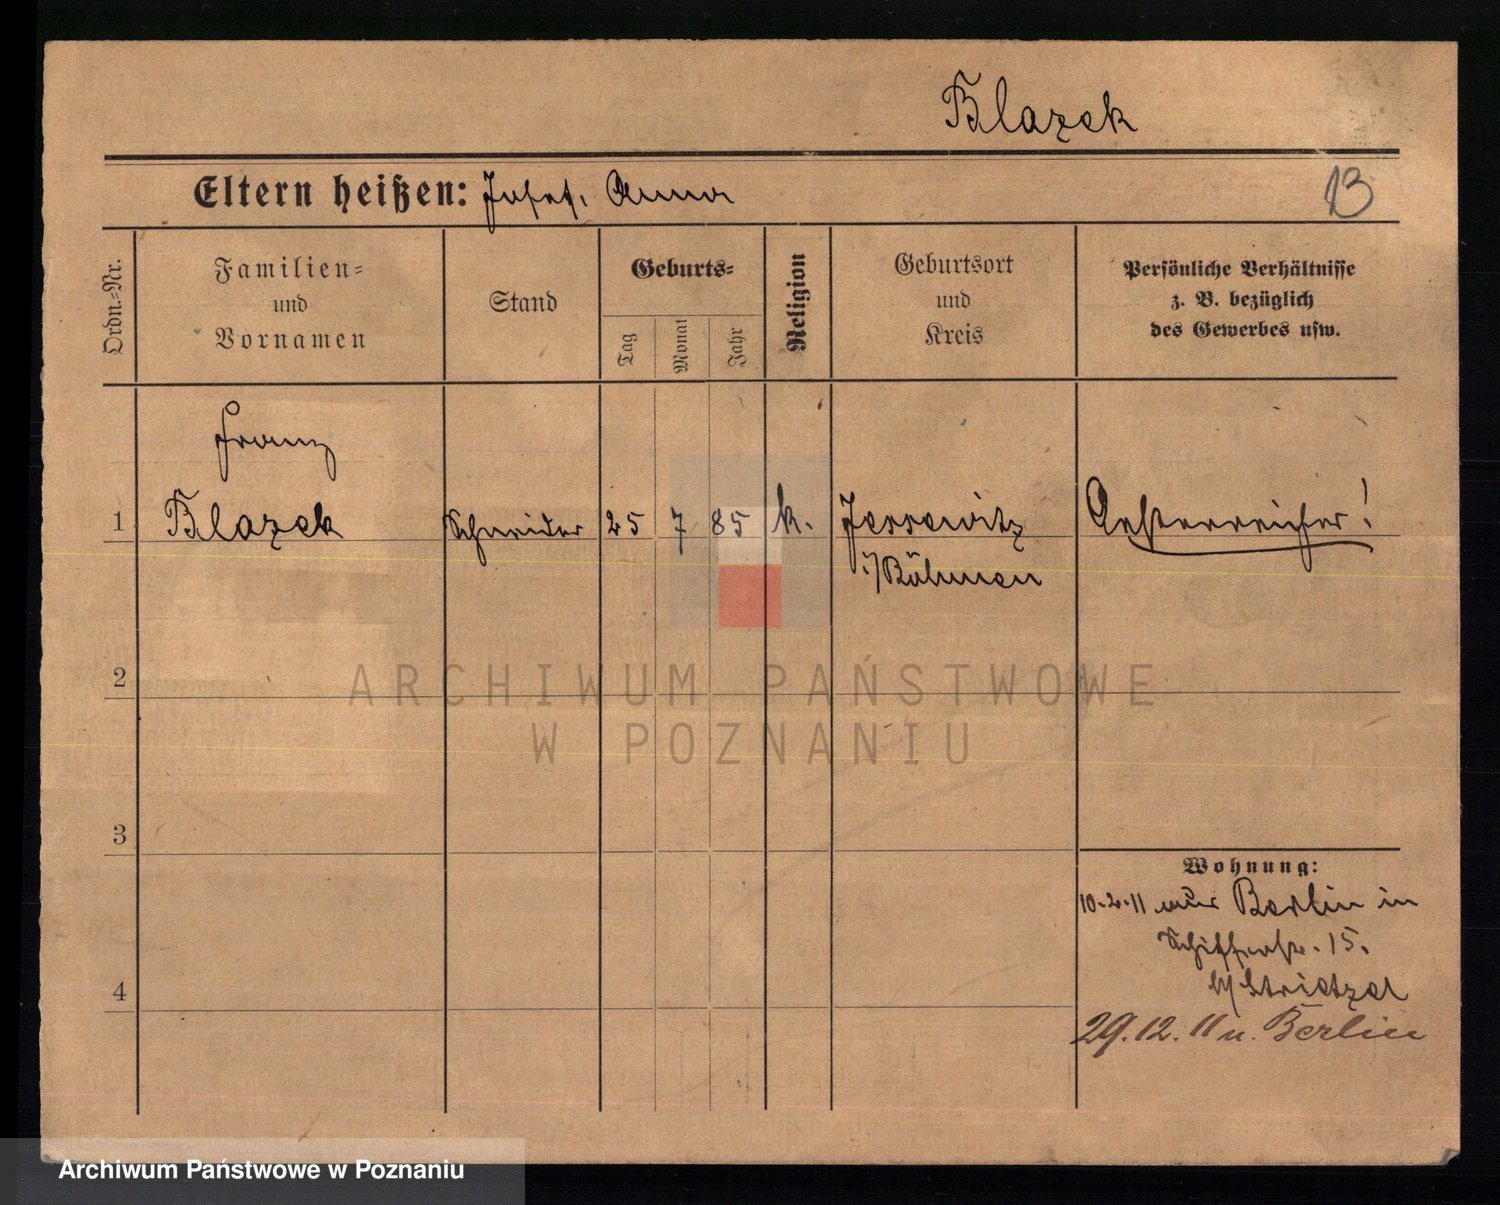 Blazek
Eltern heißen: Josef. Anna
13
Ordn.-Nr.
Familien-
und
Vornamen
Stand
Geburts-
Tag
Monat
Jahr
Religion
Geburtsort
und
Kreis
Persönliche Verhältnisse
z. B. bezüglich
des Gewerbes usw.
Franz
1 Blazek Schneider 25 7 85 k. Jerrowitz Oesterreicher!
i/Böhmen
2
ARCHIWUM PAŃSTWOWE
W POZNANIU
3
Wohnung:
10.2.11 aus Berlin in
Schifferstr. 15.
b/ Strietzel
4
29.12.11 n. Berlin
Archiwum Państwowe w Poznaniu